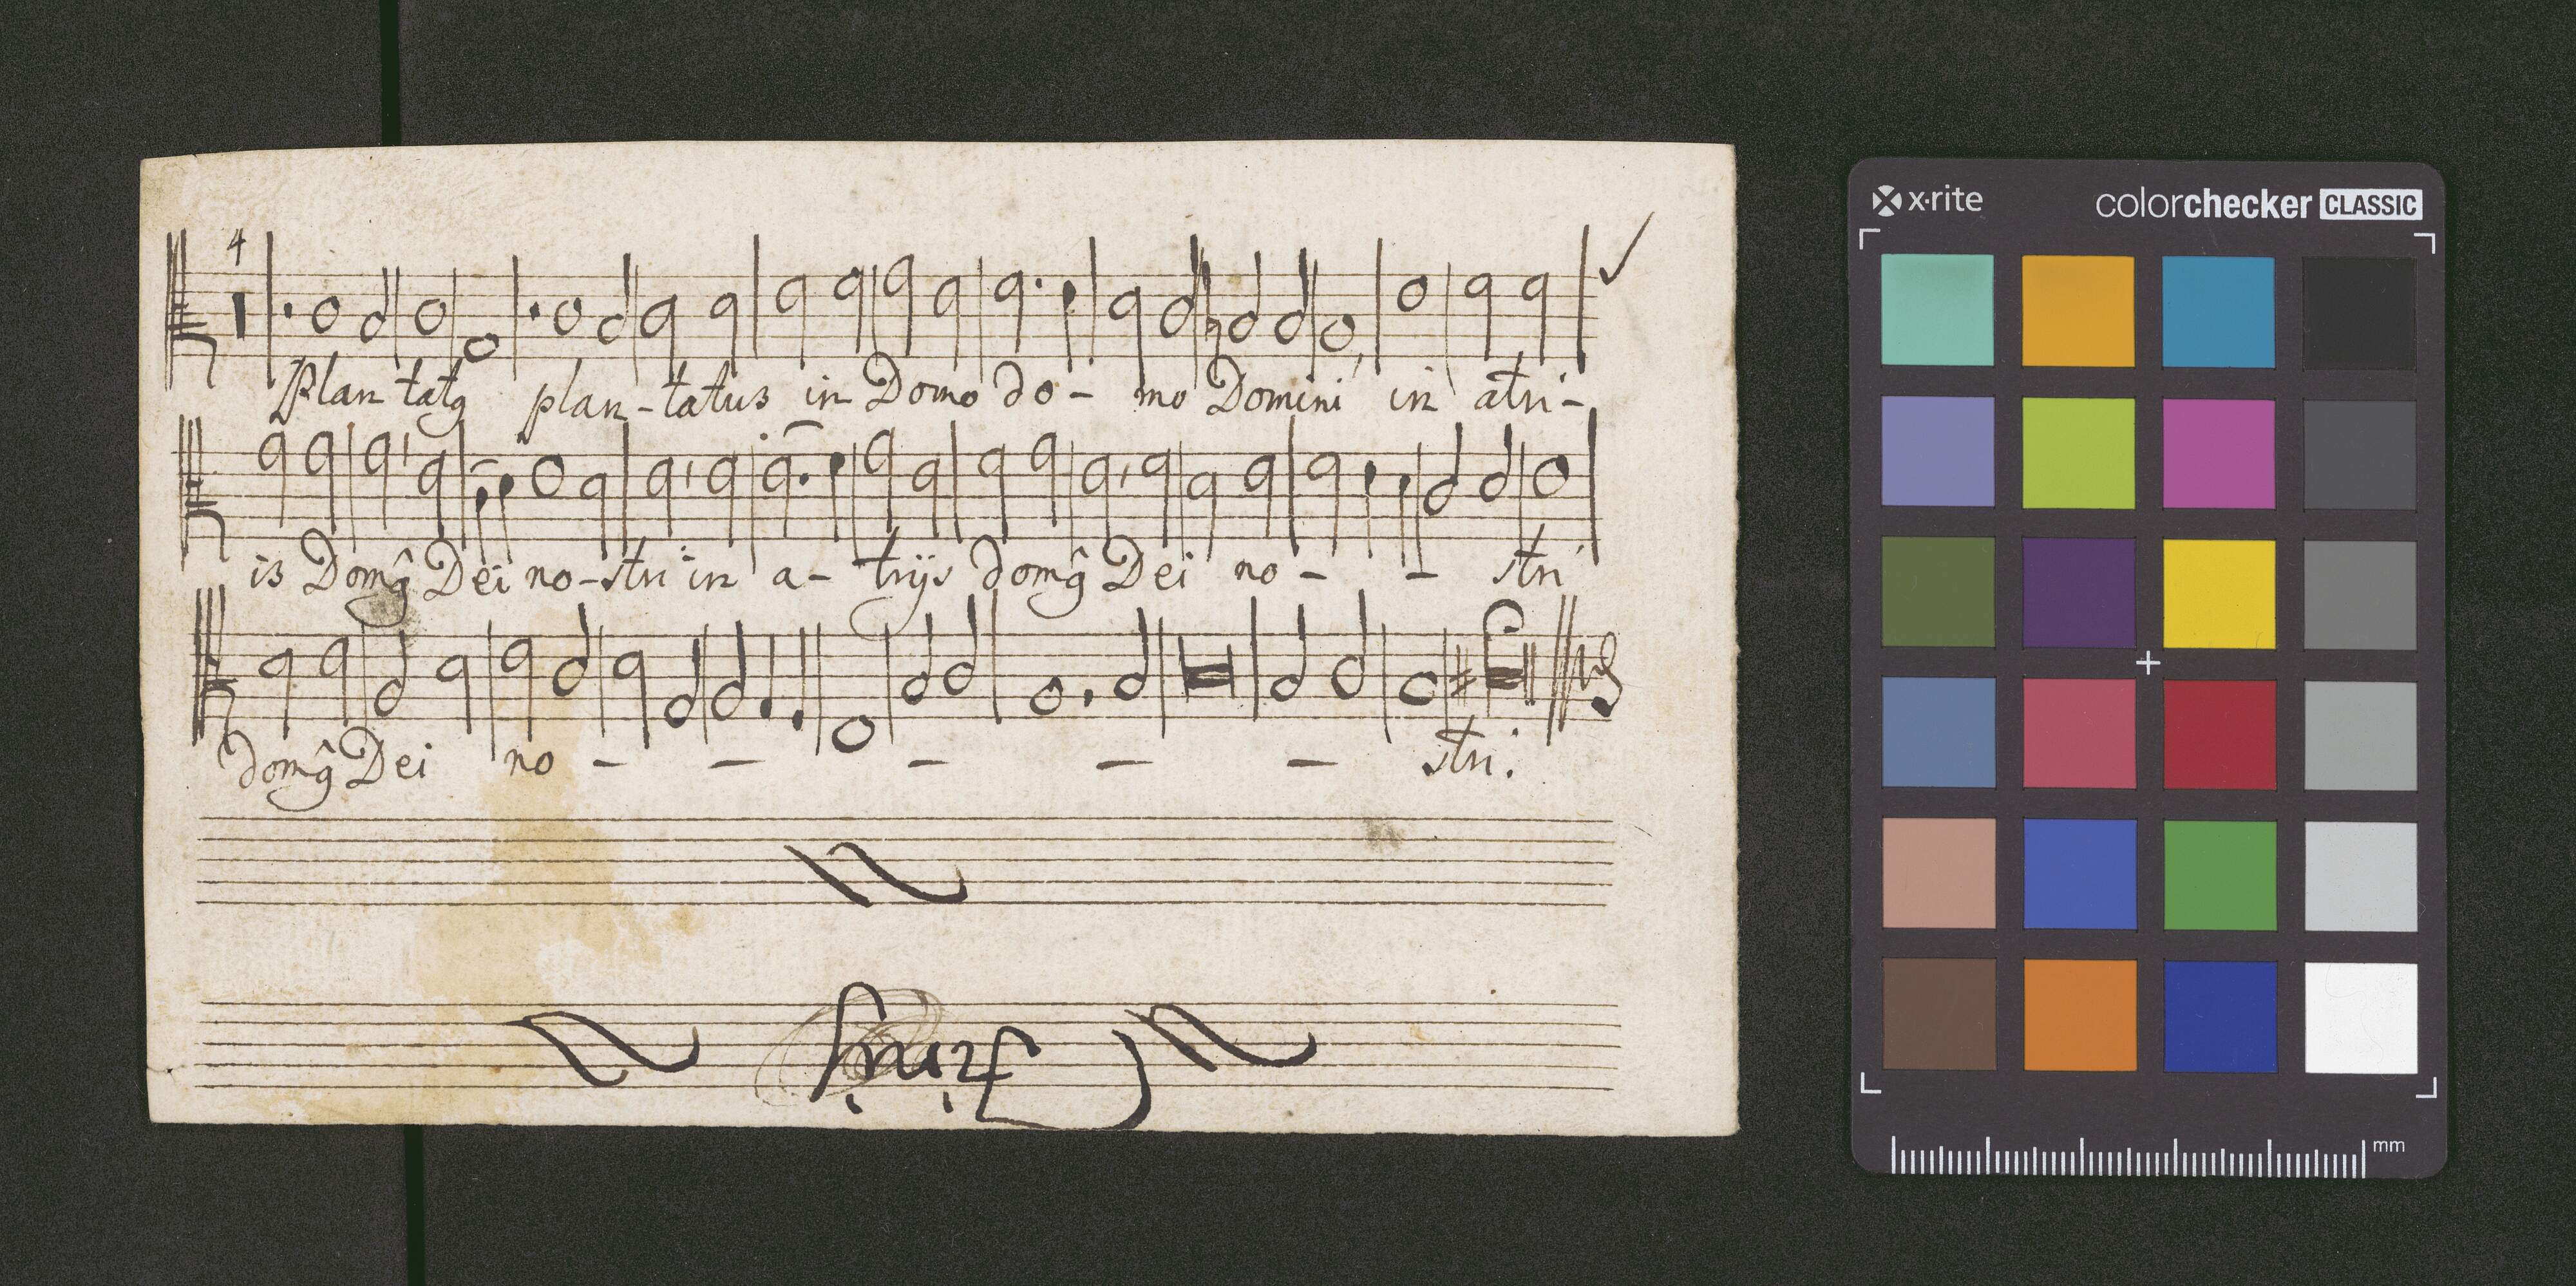 4
Plantatꝯ plan-tatus in Domo do- mo Domini in atri-
is Domꝯ̂ Dei no-stri in a- trijs domꝯ̂ Dei no- - stri
domꝯ̂ Dei no- - - - - stri.
Finis
x·rite
colorchecker CLASSIC
mm